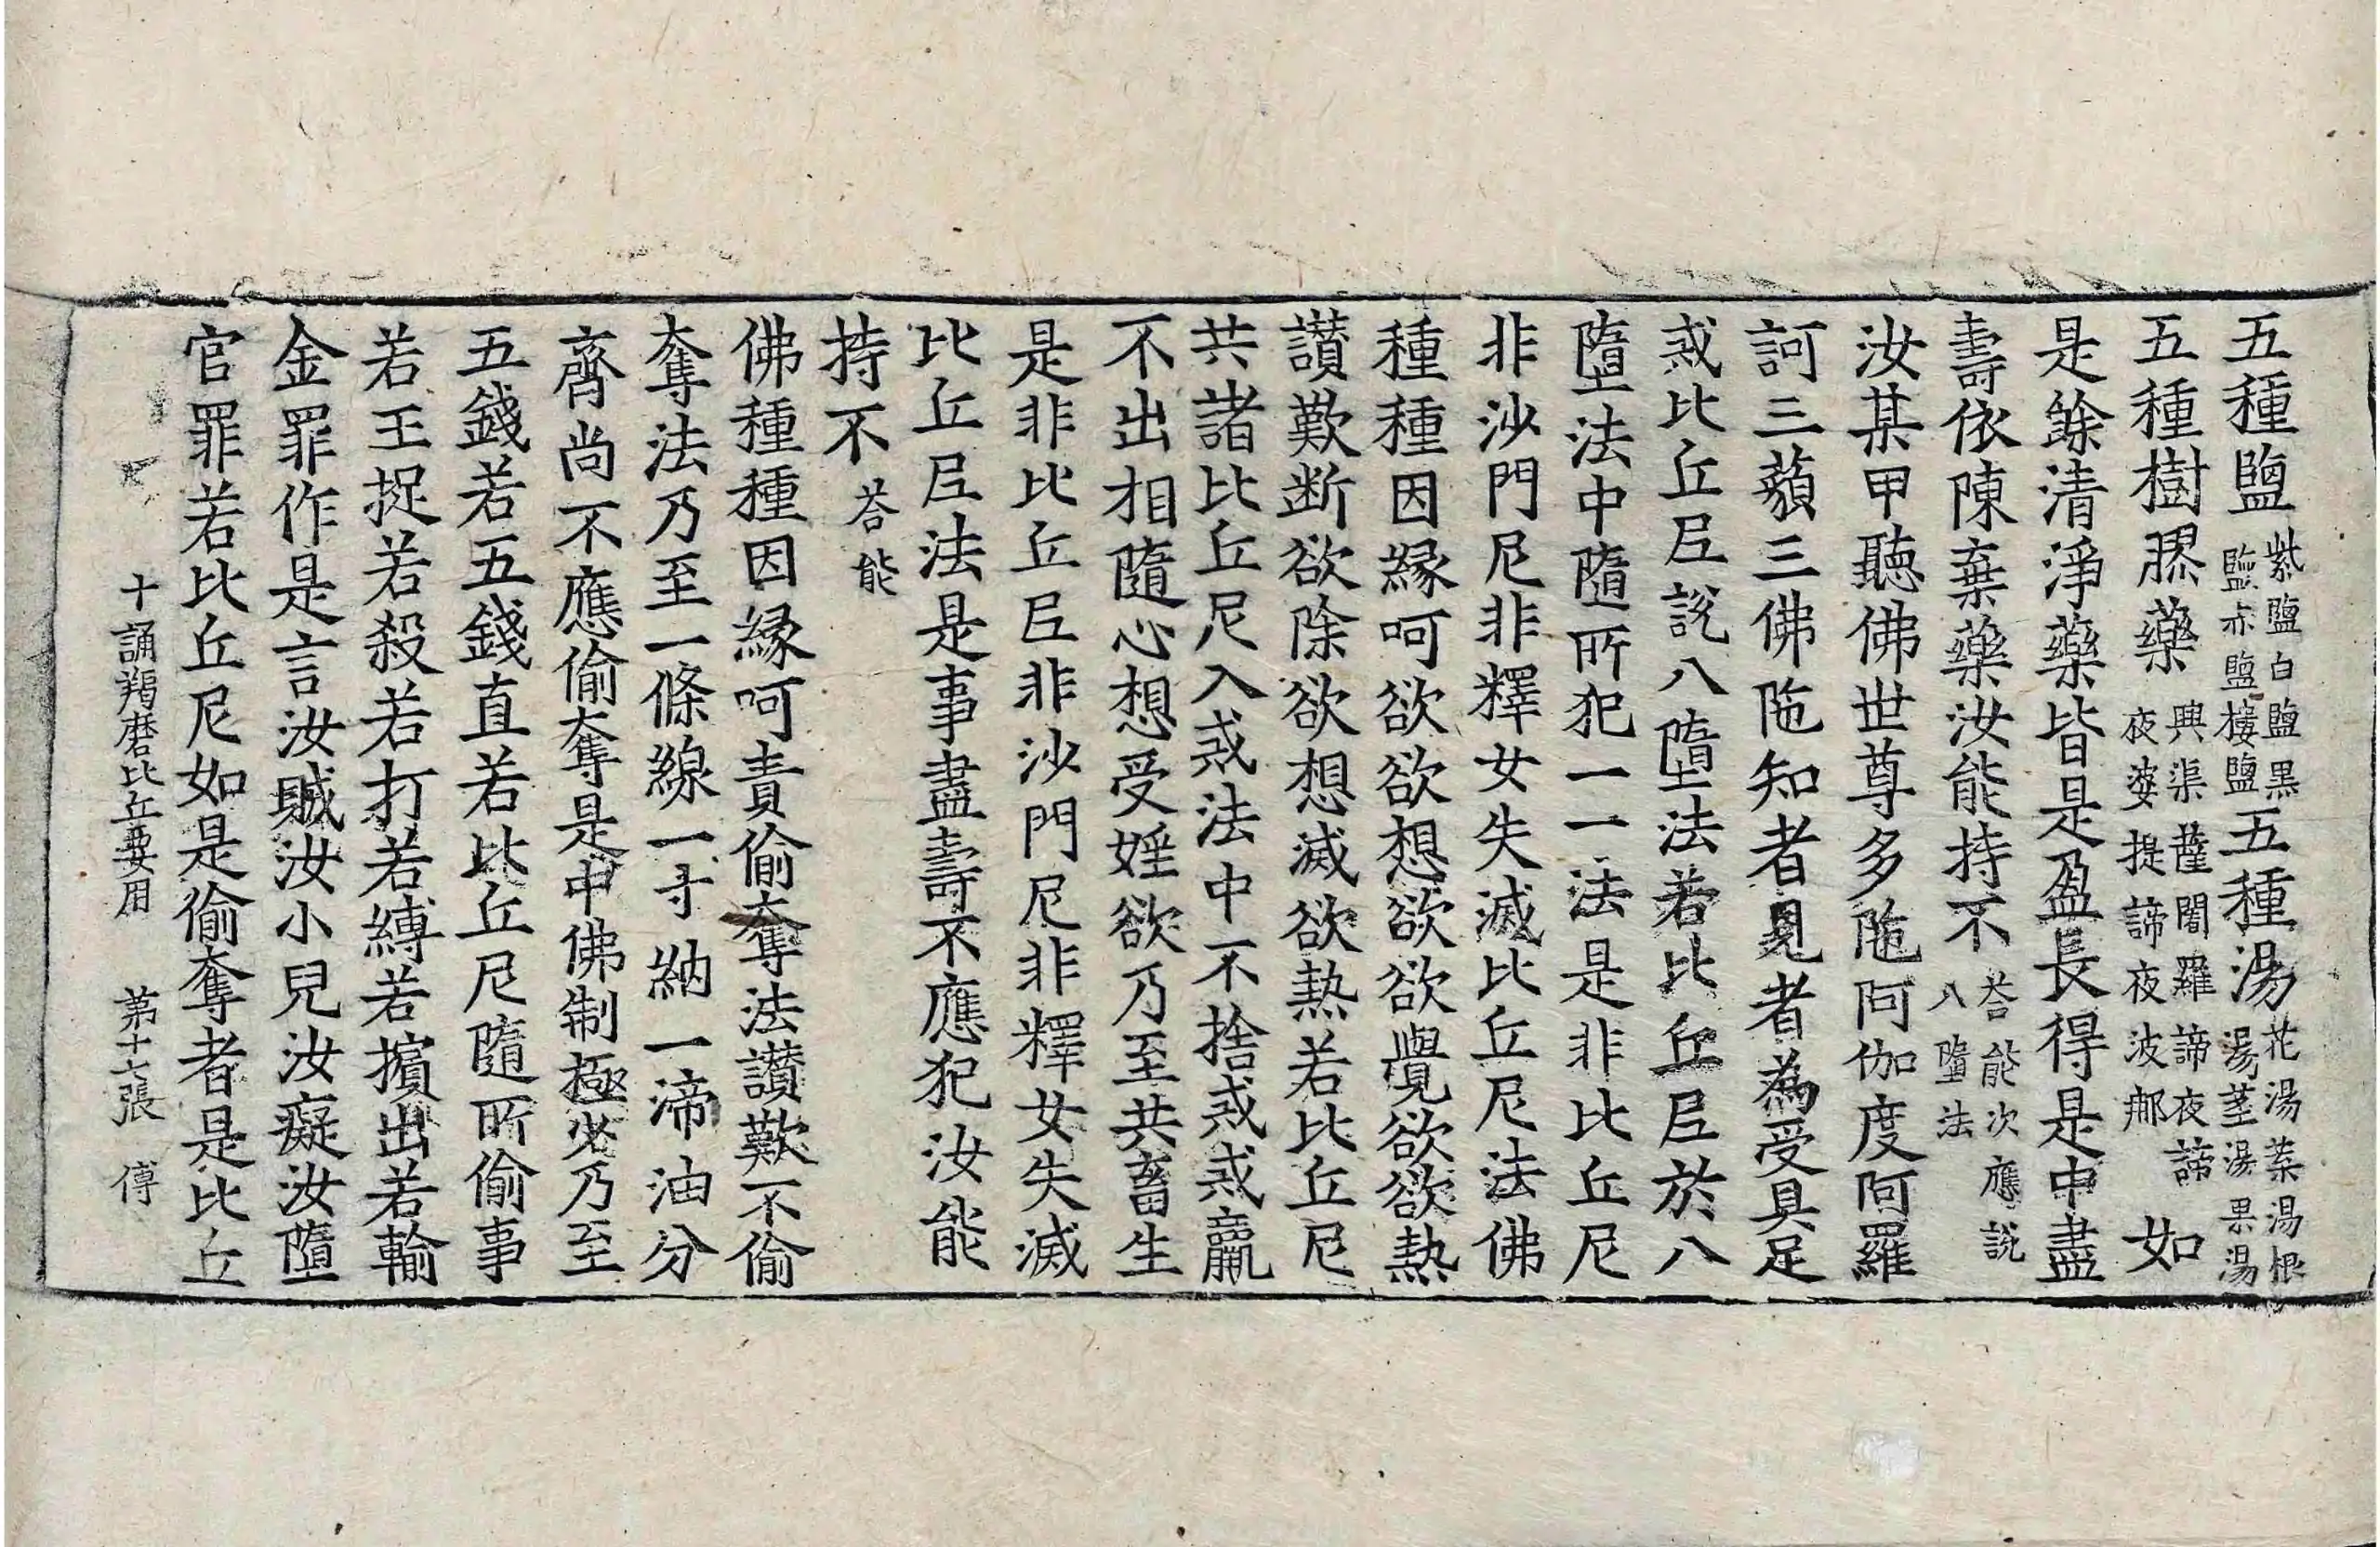 五種鹽紫鹽白鹽黒鹽赤鹽樓鹽五種湯花湯葉湯根湯莖湯果湯
五種樹膠藥興渠薩闍羅諦夜諦夜婆提諦夜波郍如
是餘清淨藥皆是盈長得是中盡
壽依陳棄藥汝能持不荅能次應說八墮法
汝某甲聽佛世尊多陁阿伽度阿羅
訶三藐三佛陁知者見者為受具足
戒比丘尼說八墮法若比丘尼於八
墮法中隨所犯一一法是非比丘尼
非沙門尼非釋女失滅比丘尼法佛
種種因緣呵欲欲想欲欲覺欲欲熱
讃歎斷欲除欲想滅欲熱若比丘尼
共諸比丘尼入戒法中不捨戒戒羸
不出相隨心想受婬欲乃至共畜生
是非比丘尼非沙門尼非釋女失滅
比丘尼法是事盡壽不應犯汝能
持不荅能
佛種種因緣呵責偷奪法讃歎不偷
奪法乃至一條線一寸納一渧油分
齊尚不應偷奪是中佛制極少乃至
五錢若五錢直若比丘尼隨所偷事
若王捉若殺若打若縛若擯出若輸
金罪作是言汝賊汝小兒汝癡汝墮
官罪若比丘尼如是偷奪者是比丘
十誦羯磨比丘要用　第十七張　傅